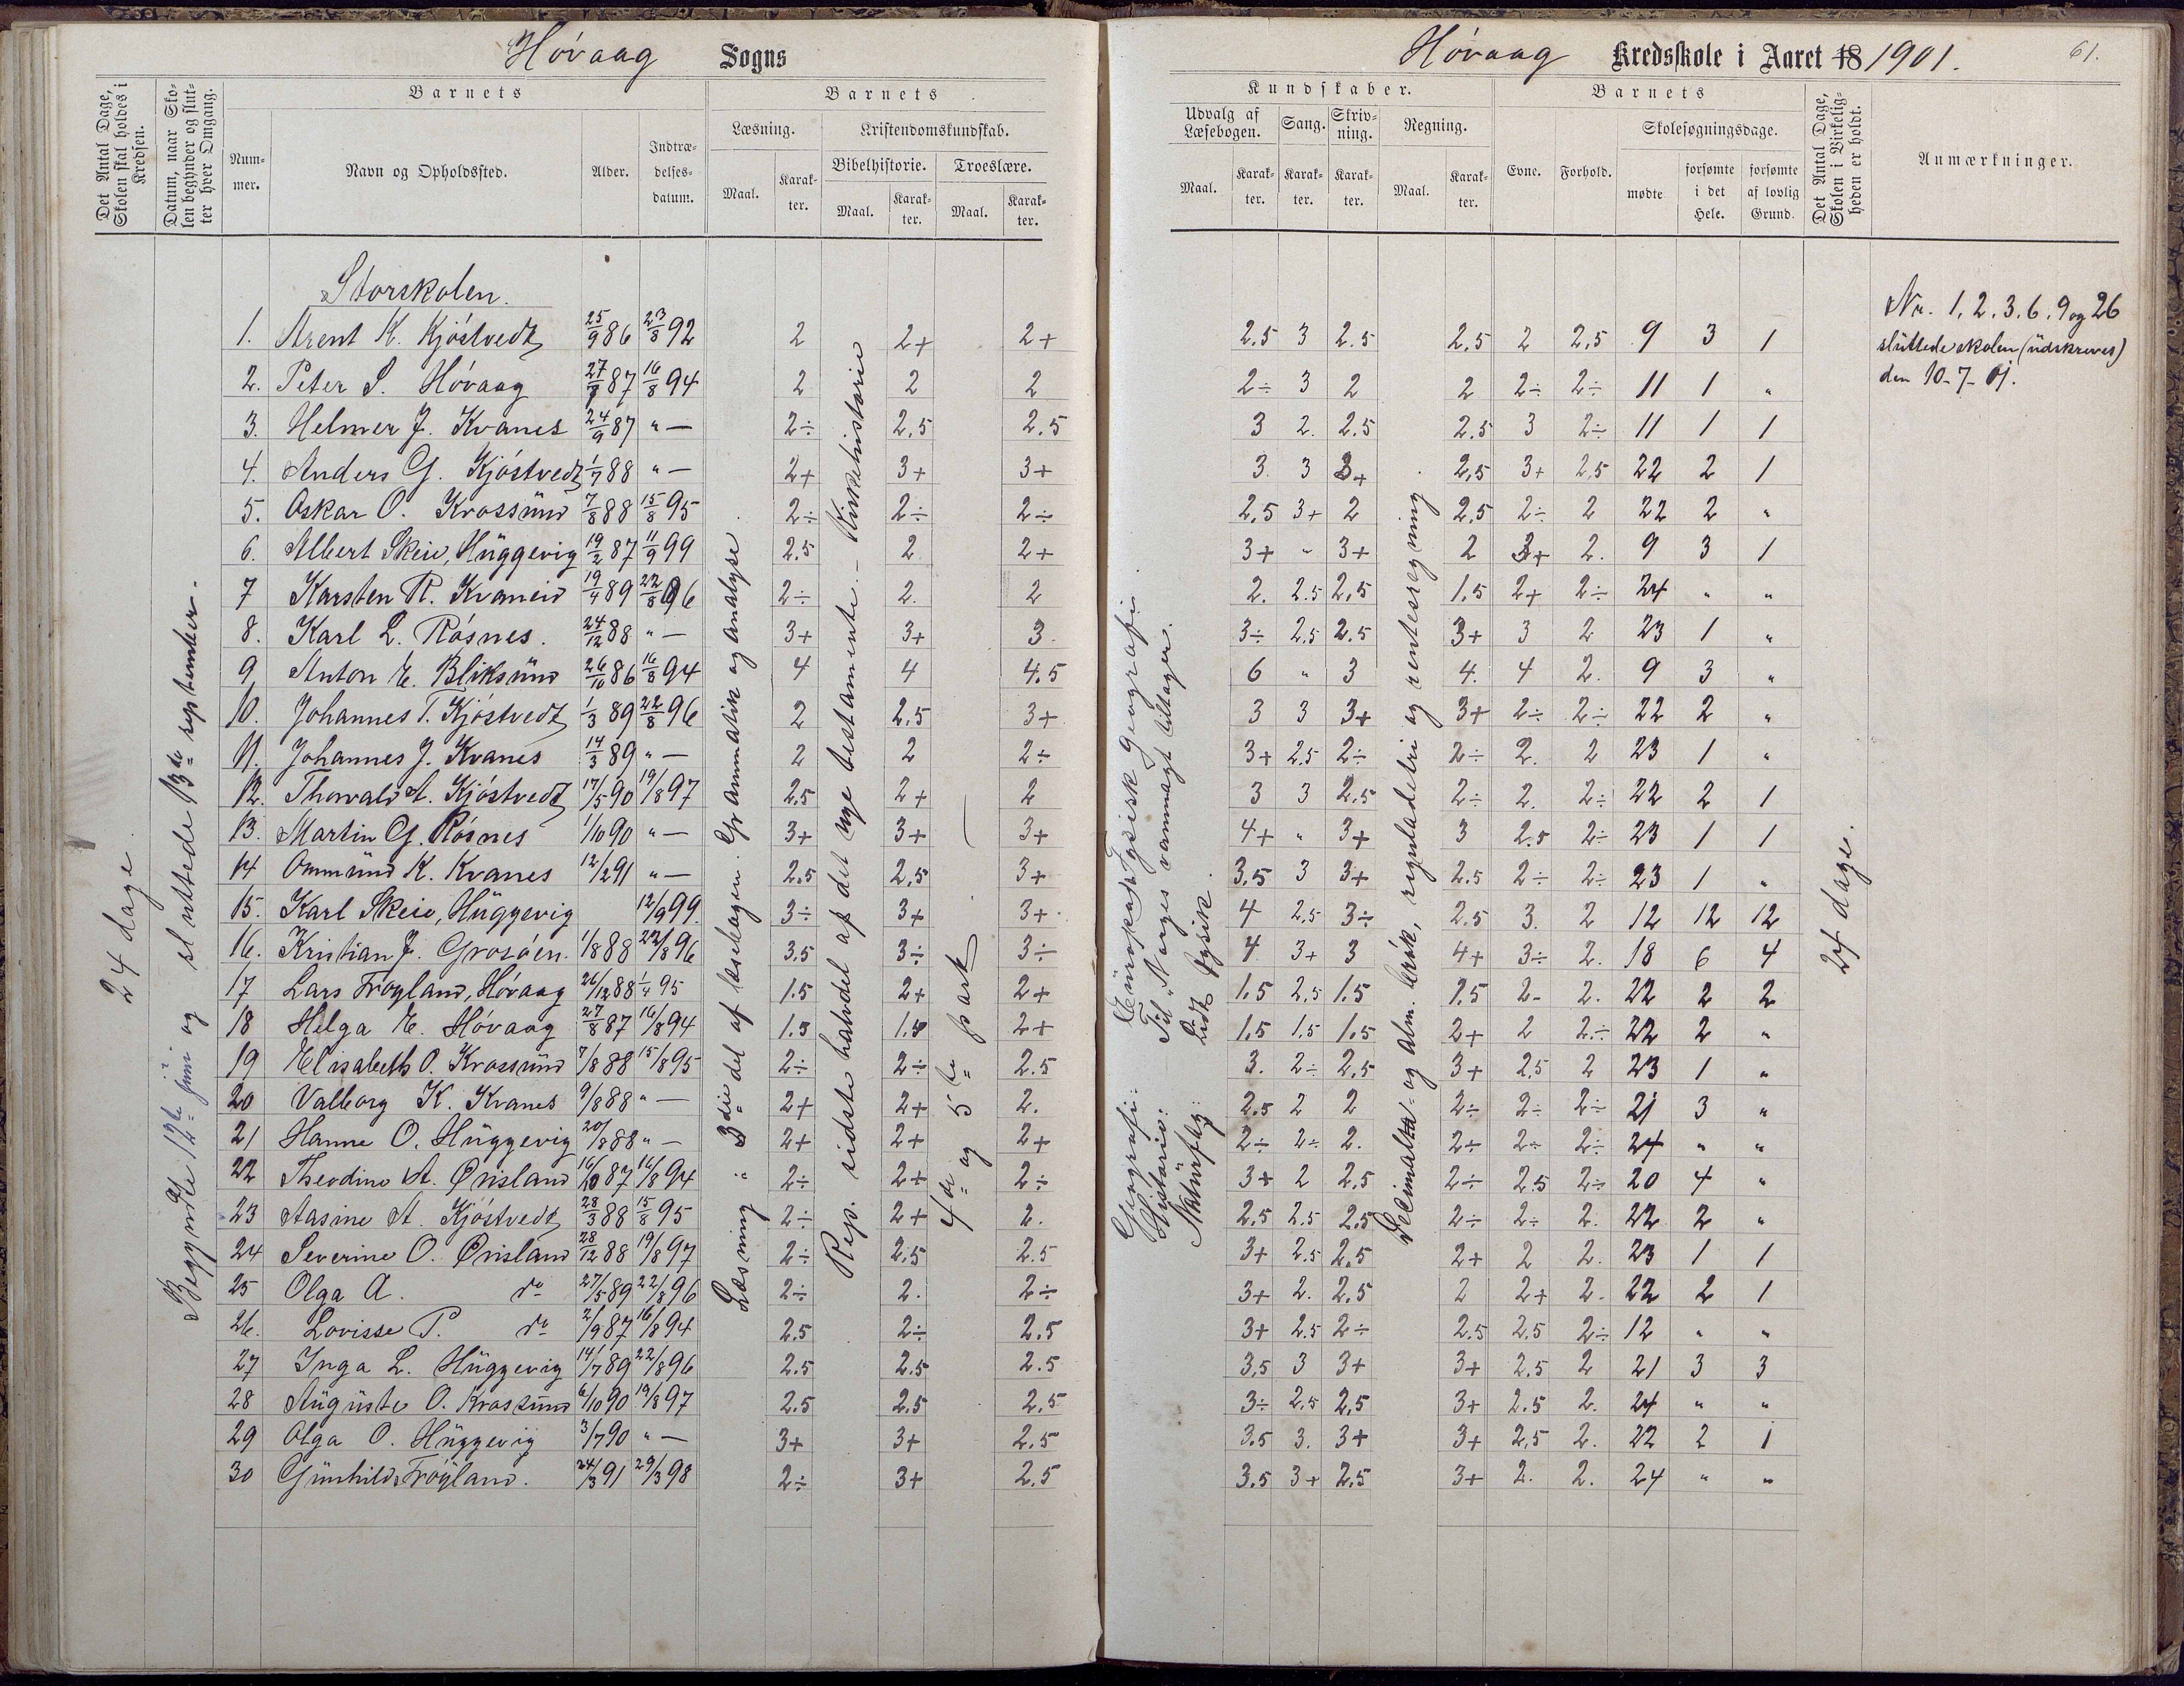 Hóvaag Sogns
Det Antal Dage, Skolen skal holdes i Kredsen.
Datum, naar Skolen begynder og slutter hver Omgang.
Barnets
Nummer.
Navn og Opholdssted.
Alder.
Indtrædelsesdatum.
Barnets
Læsning.
Maal.
Karakter.
Kristendomskundskab.
Bibelhistorie.
Maal.
Karakter.
Troeslære.
Maal.
Karakter.
Hóvaag Kredsskole i Aaret 18 1901. 61.
Kundskaber.
Udvalg af Læsebogen.
Maal.
Karakter.
Sang.
Karakter.
Skrivning.
Karakter.
Regning.
Maal.
Karakter.
Barnets
Evne.
Forhold.
Skolesøgningsdage.
mødte
forsømte i det Hele.
forsømte af lovlig Grund.
Det Antal Dage, Skolen i Virkeligheden er holdt.
Anmærkninger.
24 dage.
Begyndte 12te juni og sluttede 13de september.
Læsning: 3die del af læsebogen. Grammatik og analyse.
Rep. sidste halvdel af det nye testamente. - Kirkehistorie
4de og 5te park
Geografi: Europa. Fysisk geografi.
Historie: Til "Norges vanmagt tiltager.
Naturfag: Lidt fysik.
Decimal- og alm. brók, reguladetri og rentesregning.
24 dage.
Storskolen.
1. Arent K. Kjóstvedt 25/9 86 23/8 92 2 2+ 2+ 2.5 3 2.5 2.5 2 2,5 9 3 1
2. Peter S. Hóvaag 27/7 87 16/8 94 2 2 2 2÷ 3 2 2 2÷ 2÷ 11 1 "
3. Helmer J. Kvanes 24/9 87 " — 2÷ 2,5 2.5 3 2. 2.5 2.5 3 2÷ 11 1 1
4. Anders G. Kjóstvedt 1/7 88 " — 2+ 3+ 3+ 3. 3 3+ 2,5 3+ 2,5 22 2 1
5. Oskar O. Krossünd 7/8 88 15/8 95 2÷ 2÷ 2÷ 2,5 3+ 2 2,5 2÷ 2 22 2 "
6. Albert Skeie, Hüggevig 19/2 87 11/9 99 2.5 2 2+ 3+ " 3+ 2 3+ 2. 9 3 1
7 Karsten R. Kvaneid 19/4 89 22/8 96 2÷ 2. 2 2. 2.5 2,5 1,5 2+ 2÷ 24 " "
8. Karl L. Rósnes. 24/12 88 " — 3+ 3+ 3. 3÷ 2,5 2.5 3+ 3 2 23 1 "
9 Anton E. Bliksünd 26/10 86 16/8 94 4 4 4.5 6 " 3 4. 4 2. 9 3 "
10. Johannes T. Kjóstvedt 1/3 89 22/8 96 2 2,5 3+ 3 3 3+ 3+ 2÷ 2÷ 22 2 "
11. Johannes J. Kvanes 14/3 89 " — 2 2 2÷ 3+ 2.5 2÷ 2÷ 2. 2 23 1 "
12. Thorvald A. Kjóstvedt 17/5 90 19/8 97 2.5 2+ 2 3 3 2.5 2÷ 2. 2÷ 22 2 1
13. Martin G. Rósnes 1/10 90 " — 3+ 3+ 3+ 4+ " 3+ 3 2.5 2÷ 23 1 1
14 Ommünd K. Kvanes 12/2 91 " — 2.5 2,5 3+ 3.5 3 3+ 2.5 2÷ 2÷ 23 1 "
15. Karl Skeie, Hüggevig 12/9 99. 3÷ 3+ 3+ 4 2.5 3÷ 2.5 3. 2 12 12 12
16. Kristian J. Grosóen. 1/8 88 22/8 96 3.5 3÷ 3÷ 4 3+ 3 4+ 3÷ 2. 18 6 4
17 Lars Frógland, Hóvaag 26/12 88 1/4 95 1.5 2+ 2+ 1.5 2,5 1.5 1.5 2- 2. 22 2 2
18 Helga E. Hóvaag 27/8 87 16/8 94 1.5 1.5 2+ 1,5 1.5 1.5 2+ 2 2÷ 22 2 "
19 Elisabeth O. Krossünd 7/8 88 15/8 95 2÷ 2÷ 2.5 3. 2÷ 2,5 3+ 2,5 2 23 1 "
20 Valborg K. Kvanes 9/8 88 " — 2+ 2+ 2. 2.5 2 2 2÷ 2÷ 2÷ 21 3 "
21 Hanne O. Hüggevig 20/8 88 " — 2+ 2+ 2+ 2÷ 2÷ 2. 2÷ 2÷ 2÷ 24 " "
22 Theodine A. Ørisland 16/10 87 16/8 94 2÷ 2+ 2÷ 3+ 2 2.5 2÷ 2.5 2÷ 20 4 "
23 Aasine A. Kjóstvedt 28/3 88 15/8 95 2÷ 2+ 2. 2.5 2.5 2.5 2÷ 2÷ 2. 22 2 "
24 Severine O. Ørisland 28/12 88 19/8 97 2÷ 2.5 2.5 3+ 2.5 2.5 2+ 2 2. 23 1 1
25 Olga A. do 27/5 89 22/8 96 2÷ 2. 2÷ 3+ 2. 2.5 2 2+ 2. 22 2 1
26. Lovisse P. do 2/9 87 16/8 94 2.5 2÷ 2.5 3+ 2.5 2÷ 2.5 2,5 2÷ 12 " "
27 Inga L. Hüggevig 14/7 89 22/8 96 2.5 2.5 2.5 3,5 3 3+ 3+ 2.5 2 21 3 3
28 Aügüste O. Krossünd 6/10 90 19/8 97 2.5 2.5 2,5 3÷ 2,5 2,5 3+ 2.5 2. 24 " "
29 Olga O. Hüggevig 3/7 90 " — 3+ 3+ 2.5 3.5 3. 3+ 3+ 2,5 2. 22 2 1
30 Günhild Frógland. 24/3 91 29/3 98 2÷ 3+ 2.5 3.5 3+ 2.5 3+ 2. 2. 24 " "
Nr. 1, 2. 3. 6. 9 og 26
slüttede skolen (üdskreves)
den 10-7-01.